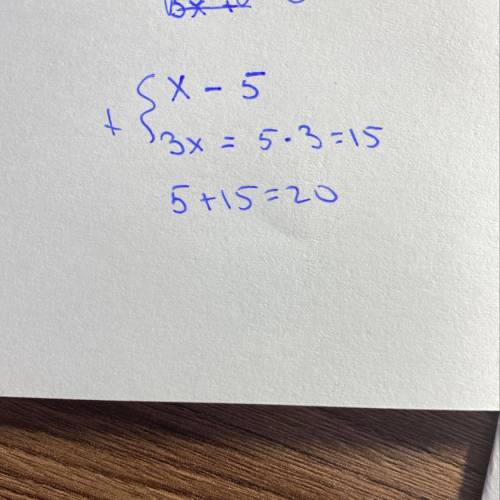 { x - 5
+ { 3x = 5 · 3 = 15
5 + 15 = 20